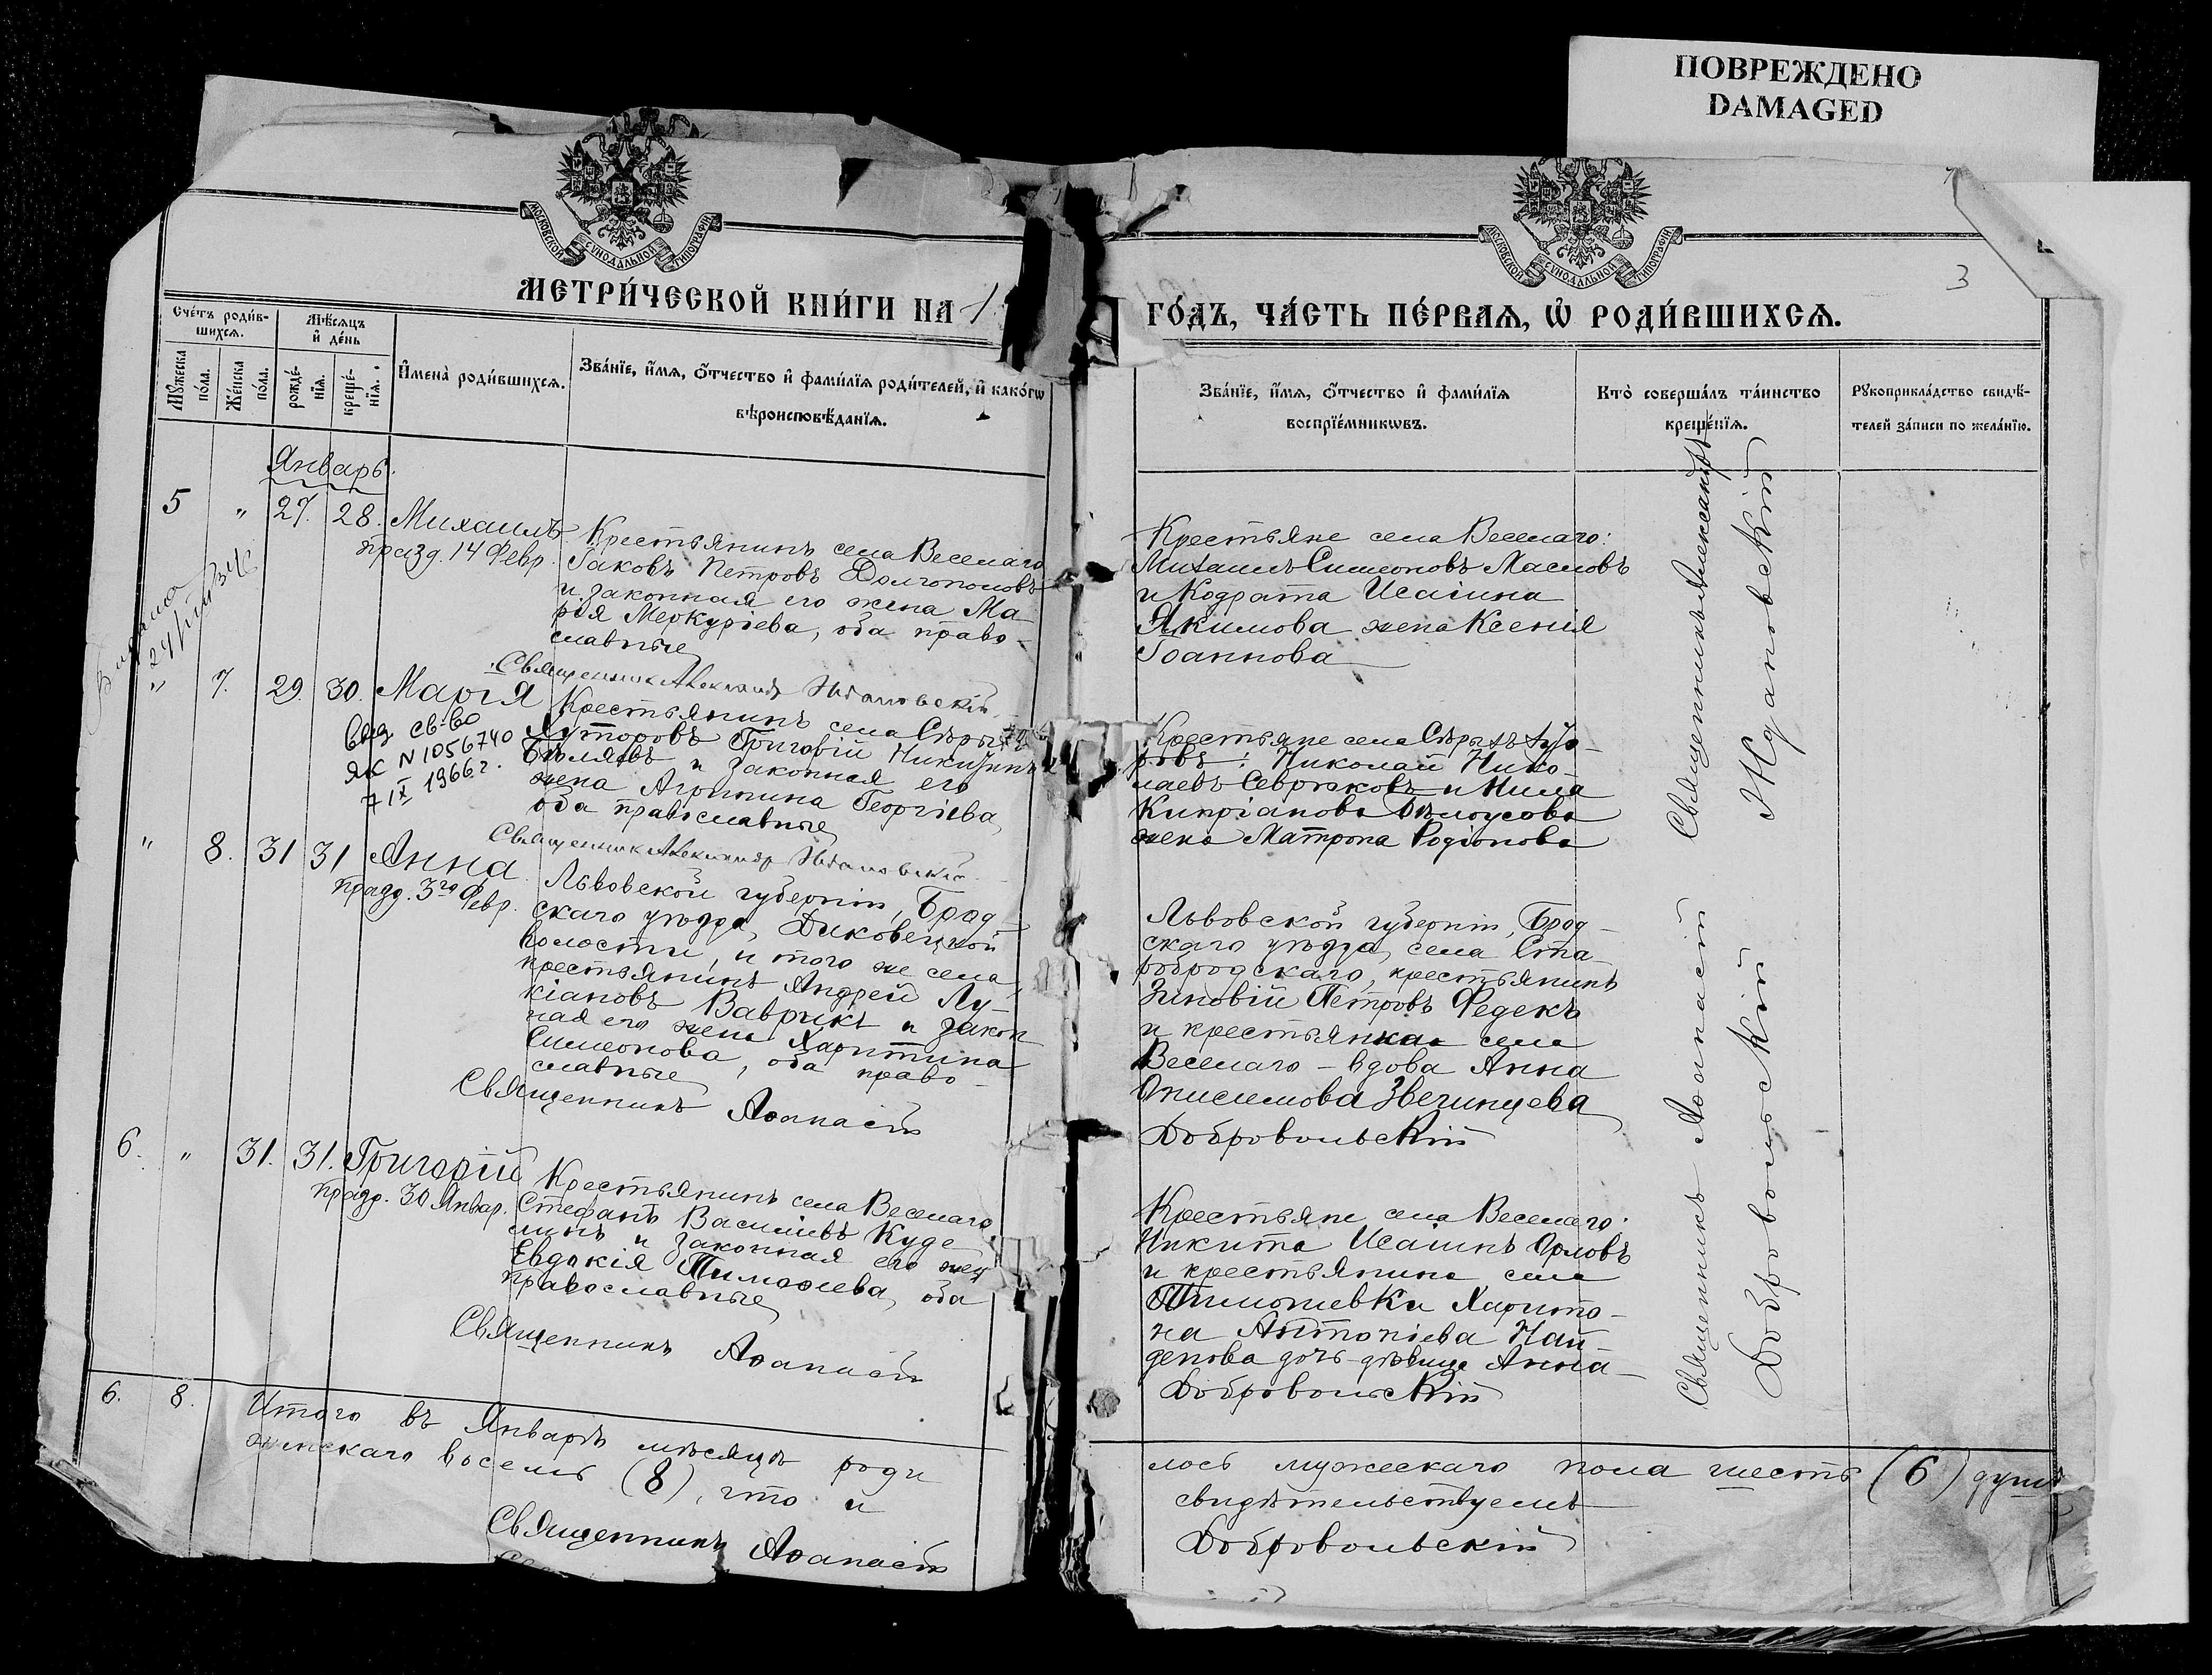 ПОВРЕЖДЕНО
DAMAGED
МОСКОВСКОЙ СУНОДАЛЬНОЙ ТИПОГРАФІИ
МОСКОВСКОЙ СУНОДАЛЬНОЙ ТИПОГРАФІИ
3
МЕТРИ́ЧЕСКОЙ КНИ́ГИ НА 1
ГО́ДЪ, ЧА́СТЬ ПЕ́РВАѦ, Ѡ҆ РОДИ́ВШИХСѦ.
Сче́тъ роди́в-
шихсѧ.
Мꙋ́жеска по́ла.
Же́нска по́ла.
Мѣ́сѧцъ
и҆ де́нь
рожде́-
нїѧ.
креще́-
нїѧ.
И҆мена̀ роди́вшихсѧ.
Зва́нїе, и҆́мѧ, ѻ҆́тчество и҆ фами́лїѧ роди́телей, и҆ како́гѡ
вѣроисповѣ́данїѧ.
Зва́нїе, и҆́мѧ, ѻ҆́тчество и҆ фами́лїѧ
воспрїе́мникѡвъ.
Кто̀ соверша́лъ та́инство
креще́нїѧ.
Рꙋкоприкла́дство свидѣ́-
телей за́писи по жела́нїю.
Январь.
5 " 27. 28. Михаилъ
празд. 14 Февр.
Крестьянинъ села Веселаго
Іаковъ Петровъ Долгополовъ
и законная его жена Ма-
рія Меркуріева, оба право-
славные
Священник Александр Ждановскій
Крестьяне села Веселаго:
Михаилъ Симеоновъ Масловъ
и Кодрата Исаіина
Якимова жена Ксенія
Іоаннова
" 7. 29. 30. Марія
выд св-во
ЯК N 1056740
7 IX 1966 г.
Крестьянинъ села Сѣрыхъ
Хуторовъ Григорій Никитинъ
Бѣляевъ и законная его
жена Агриппина Георгіева,
оба православные
Священник Александр Ждановскій
Крестьяне села Сѣрыхъ Хуто-
ровъ: Николай Нико-
лаевъ Севрюковъ и Нила
Кипріанова Бѣлоусова
жена Матрона Родіонова
Священникъ Александръ
Ждановскій
" 8. 31 31 Анна
празд. 3го Февр.
Львовской губерніи, Брод-
скаго уѣзда, Диковецкой
волости, и того же села,
крестьянинъ Андрей Лу-
кіановъ Ваврикъ и закон
ная его жена Харитина
Симеонова, оба право-
славные
Священникъ Аѳанасій
Львовской губерніи, Брод-
скаго уѣзда, села Ста-
робродскаго, крестьянинъ
Зиновій Петровъ Федекъ
и крестьянка села
Веселаго - вдова Анна
Онисимова Звечинцева
Добровольскій
6. " 31. 31. Григорій
празд. 30 Январ.
Крестьянинъ села Веселаго
Стефанъ Василіевъ Куде
линъ и законная его жен
Евдокія Тимоѳеева, оба
православные
Священникъ Аѳанасій
Крестьяне села Веселаго:
Никита Исаіинъ Орловъ
и крестьянина села
Тимошевки Харито-
на Антоніева Най-
денова дочь-дѣвица Анна
Добровольскій
Священникъ Аѳанасій
Добровольскій
6. 8. Итого въ Январѣ мѣсяцѣ роди
лось мужескаго пола шесть (6) душъ
женскаго восемь (8), что и
свидѣтельствуемъ
Священникъ Аѳанасій
Добровольскій